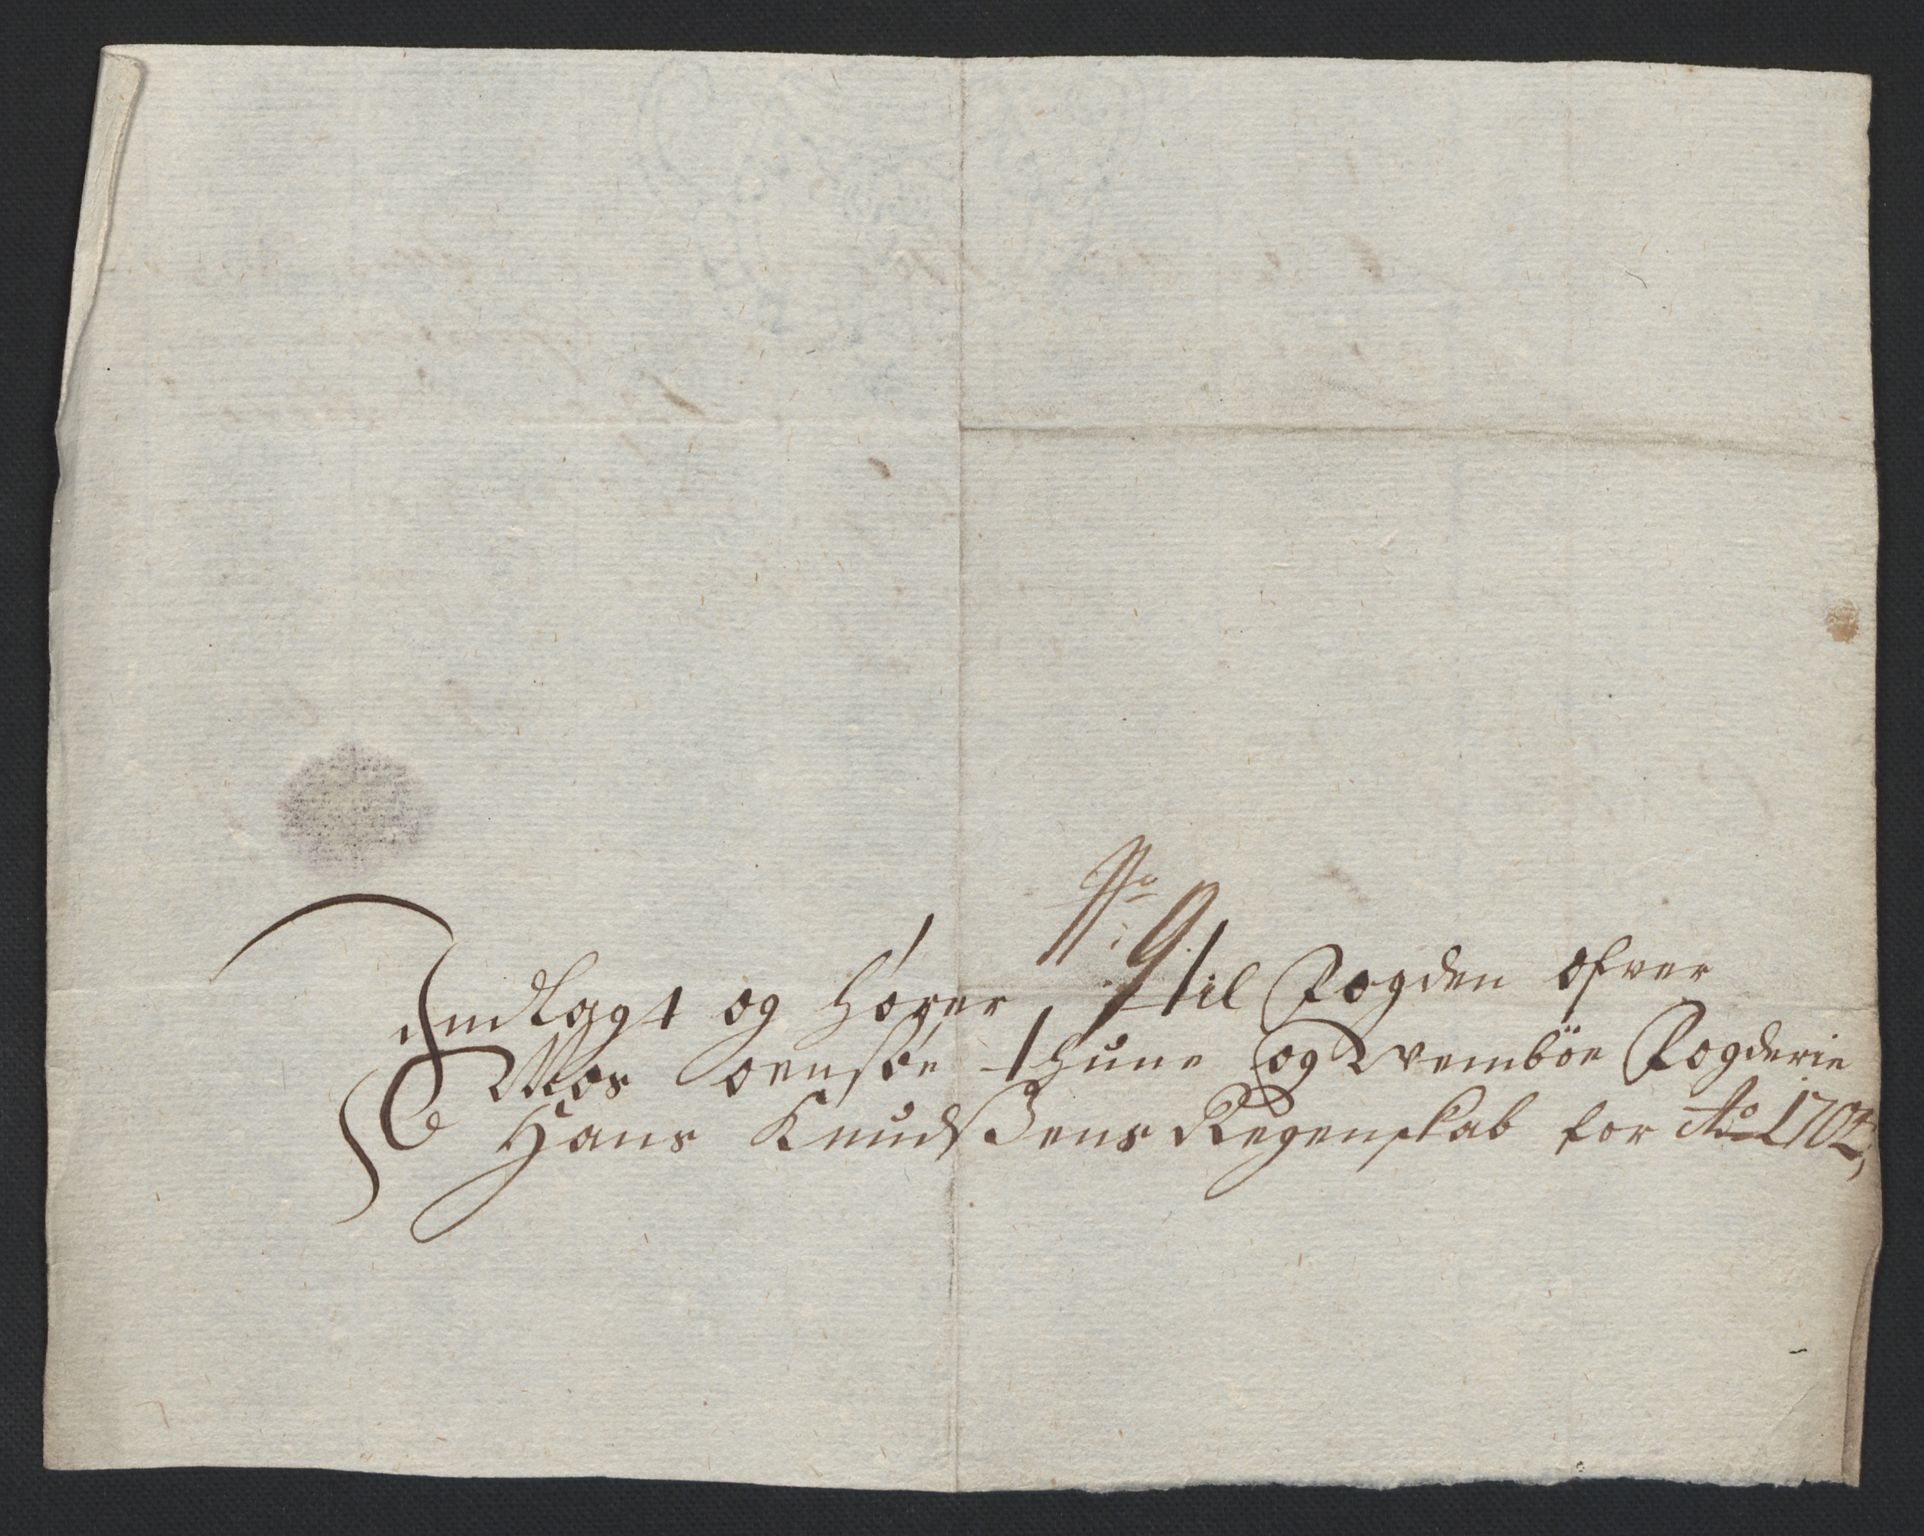 No: 9
Indlagt og hører til Fogden ofver
Mos Tønsøe Thune og Wembøe Fogderie
Hans Knudszens Regenskab for Ao 1704,